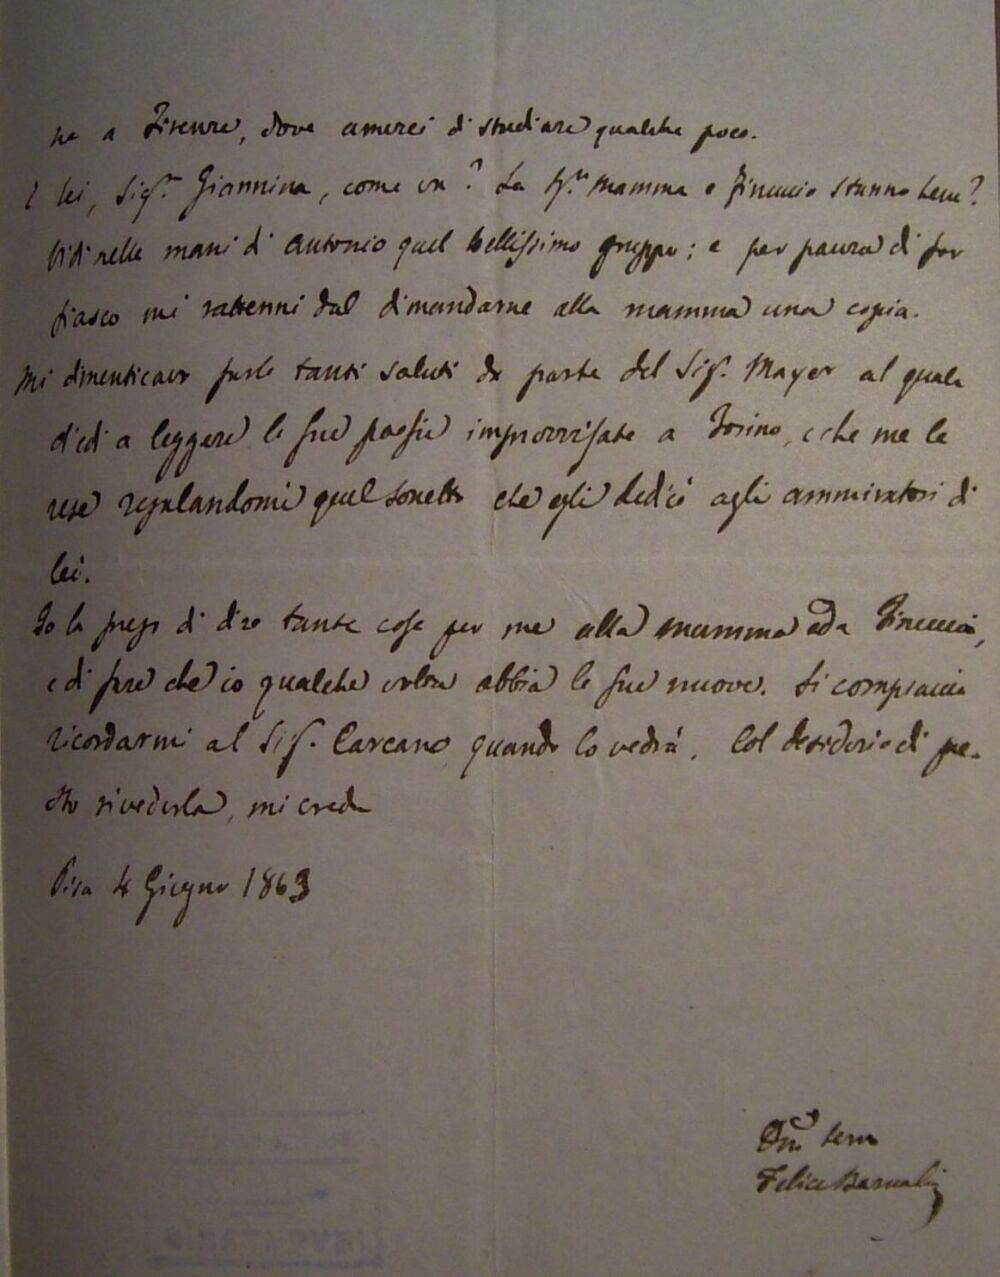 ne a Firenze, dove amerei di studiare qualche poco.
E lei, Sigra Giannina, come va? La Sra Mamma e stanno bene?
Vidi nelle mani di Antonio quel bellissimo gruppo; e per paura di far
fiasco mi rattenni dal dimandarne alla mamma una copia.
Mi dimenticavo farle tanti saluti da parte del Sigr. Mayer al quale
diedi a leggere le sue poesie improvvisate a Torino, e che me le
rese regalandomi quel sonetto che egli dedicò agli ammiratori di
lei.
Io la prego di dire tante cose per me alla mamma ed a
e di fare che io qualche volta abbia le sue nuove. Si compiaccia
ricordarmi al Sigr. Carcano quando lo vedrà. Col desiderio di pre-
sto rivederla, mi creda
Pisa 4 Giugno 1863
Felice Barnabei